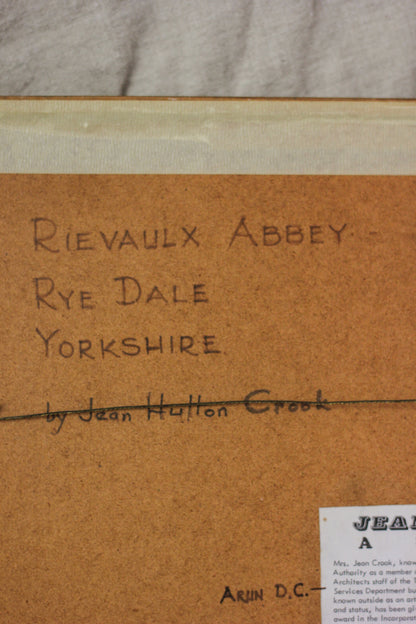 RIEVAULX ABBEY -
RYE DALE
YORKSHIRE.
by Jean Hutton Crook
ARUN D.C.-
JEA
A
Mrs. Jean Crook, know
Authority as a member o
Architects staff of the D
Services Department bu
known outside as an arti
and status, has been giv
award in the Incorpor